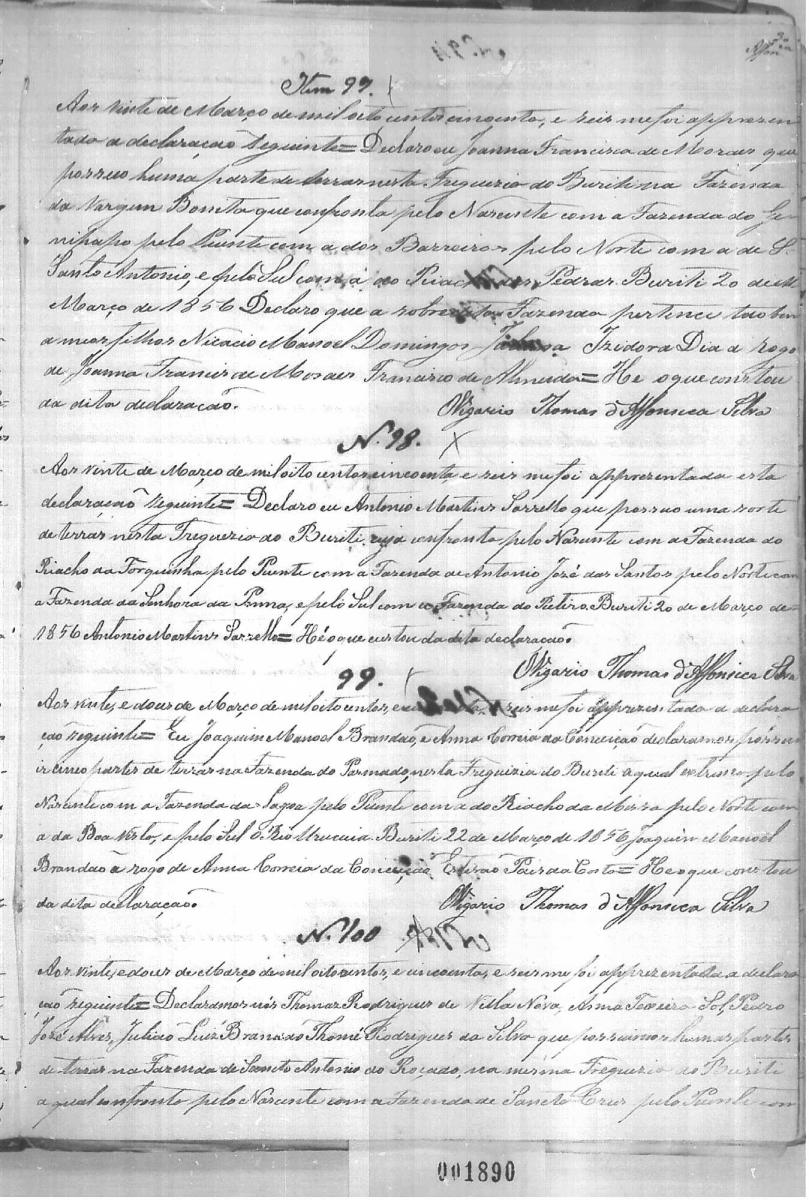 Item 97.
Aos vinte de Março de mil oito centos cincoenta, e seis me foi apprezen
tada a declaração seguinte = Declaro eu Joanna Francisca de Moraes que
possuo huma parte de terras nesta Freguezia do Buriti na Fazenda
da Vargem Bonita que confronta pelo Nascente com a Fazenda do Ge
nipapo pelo Puente com a dos Barreiros pelo Norte com a de S.
Santo Antonio, e pelo Sul com a do Riacho das Pedras. Buriti 20 de
Março de 1856 Declaro que a sobredita Fazenda pertence tãobem
a meos filhos Nicacio Manoel Domingos Izidora Dia a rogo
de Joanna Francis de Moraes Francisco de Almeida = He o que constou
da dita declaração. O Vigario Thomas d'Affonseca Silva
N. 98.
Aos vinte de Março de mil oito centos cincoenta, e seis me foi apprezentada esta
declaração seguinte = Declaro eu Antonio Martins Sarzello que possuo uma sorte
de terras nesta Freguezia do Buriti, cuja confronta pelo Nascente com a Fazenda do
Riacho da Forquinha pelo Puente com a Fazenda de Antonio José dos Santos pelo Norte com
a Fazenda da Senhora da Penna, e pelo Sul com a Fazenda do Retiro. Buriti 20 de Março de
1856 Antonio Martins Sarzello = Hé o que custou da dita declaração.
O Vigario Thomas d'Affonseca Silva
99.
Aos vinte, e dous de Março de mil oito centos, e seis me foi apprezentada a declara
ção seguinte = Eu Joaquim Manoel Brandão, e Anna Correia da Conceição declaramos possu
ir cinco partes de terras na Fazenda do nesta Freguizia do Buriti a qual extrema pelo
Nascente com a Fazenda da Lagoa pelo Puente com a do Riacho da Missa pelo Norte com
a da Boa Vista, e pelo Sul o Rio Urucuia. Buriti 22 de Março de 1856 Joaquim Manoel
Brandão a rogo de Anna Correia da Conceição Estevão Paes da Costa = He o que constou
da dita declaração. O Vigario Thomas d'Affonseca Silva
N. 100
Aos vinte, e dous de Março de mil oito centos, e cincoenta, e seis me foi apprezentada a declara
ção seguinte = Declaramos nós Thomas Rodrigues de Villa Nova, Anna Teixeira Pedro
José Alves, Julião Luiz Brandão Thomé Rodrigues da Silva que possuimos humas partes
de terras na Fazenda de Sancto Antonio do Roçado, na mesma Freguezia do Buriti
a qual confronta pelo Nascente com a Fazenda de Sancta Cruz pelo Puente com
001890